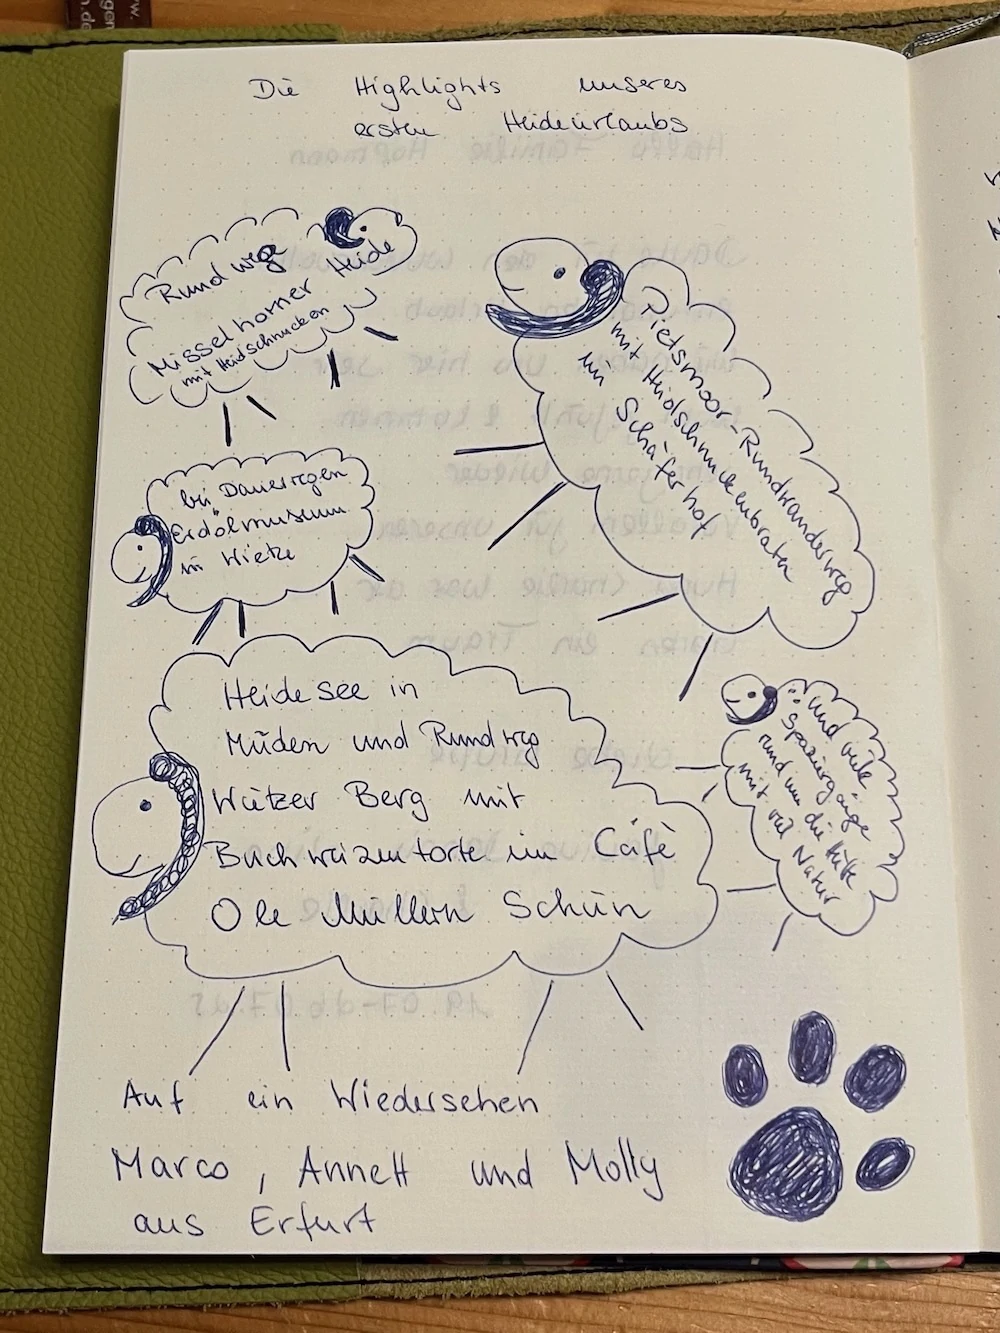 Die Highlights unseres
ersten Heideurlaubs
Rundweg
Misselhorner Heide
mit Heidschnucken
Pietzmoor-Rundwanderweg
mit Heidschnuckenbraten
im Schäferhof
bei Dauerregen
Erdölmuseum
in Wietze
Heidesee in
Müden und Rundweg
Wietzer Berg mit
Buchweizentorte im Café
Ole Müllern Schün
und viele
Spaziergänge
rund um die Hütte
mit viel Natur
Auf ein Wiedersehen
Marco, Annett und Molly
aus Erfurt